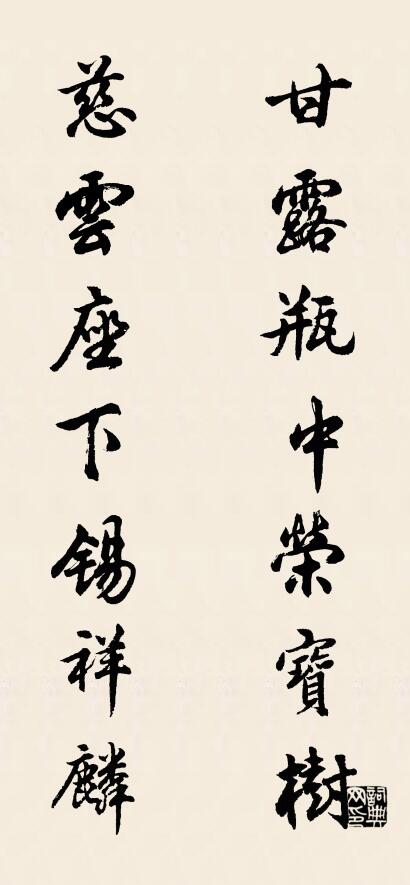 甘露瓶中榮寶樹
慈雲座下錫祥麟
詞典网印